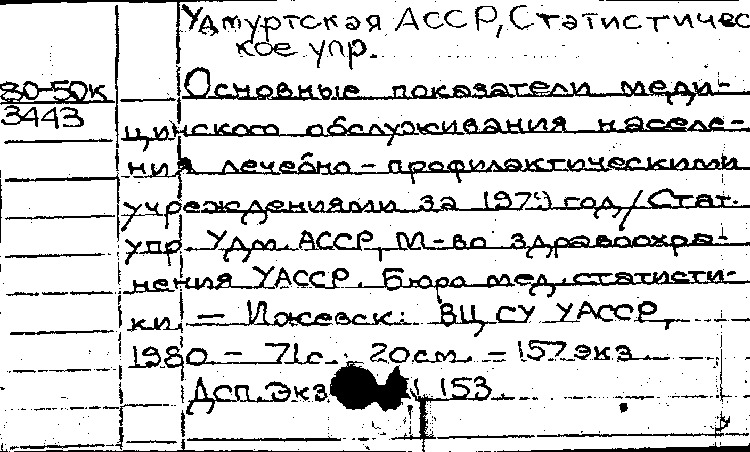 Удмуртская АССР, Статистичес
кое упр.
80-50к
3443
Основные показатели меди-
цинского обслуживания населе-
ния лечебно-профилактическими
учреждениями за 1979 год / Стат.
упр. Удм. АССР, М-во здравоохра-
нения УАССР. Бюро мед. статисти-
ки. — Ижевск: ВЦ СУ УАССР,
1980. - 71с.; 20см. - 157экз.
Дсп. Экз 153.